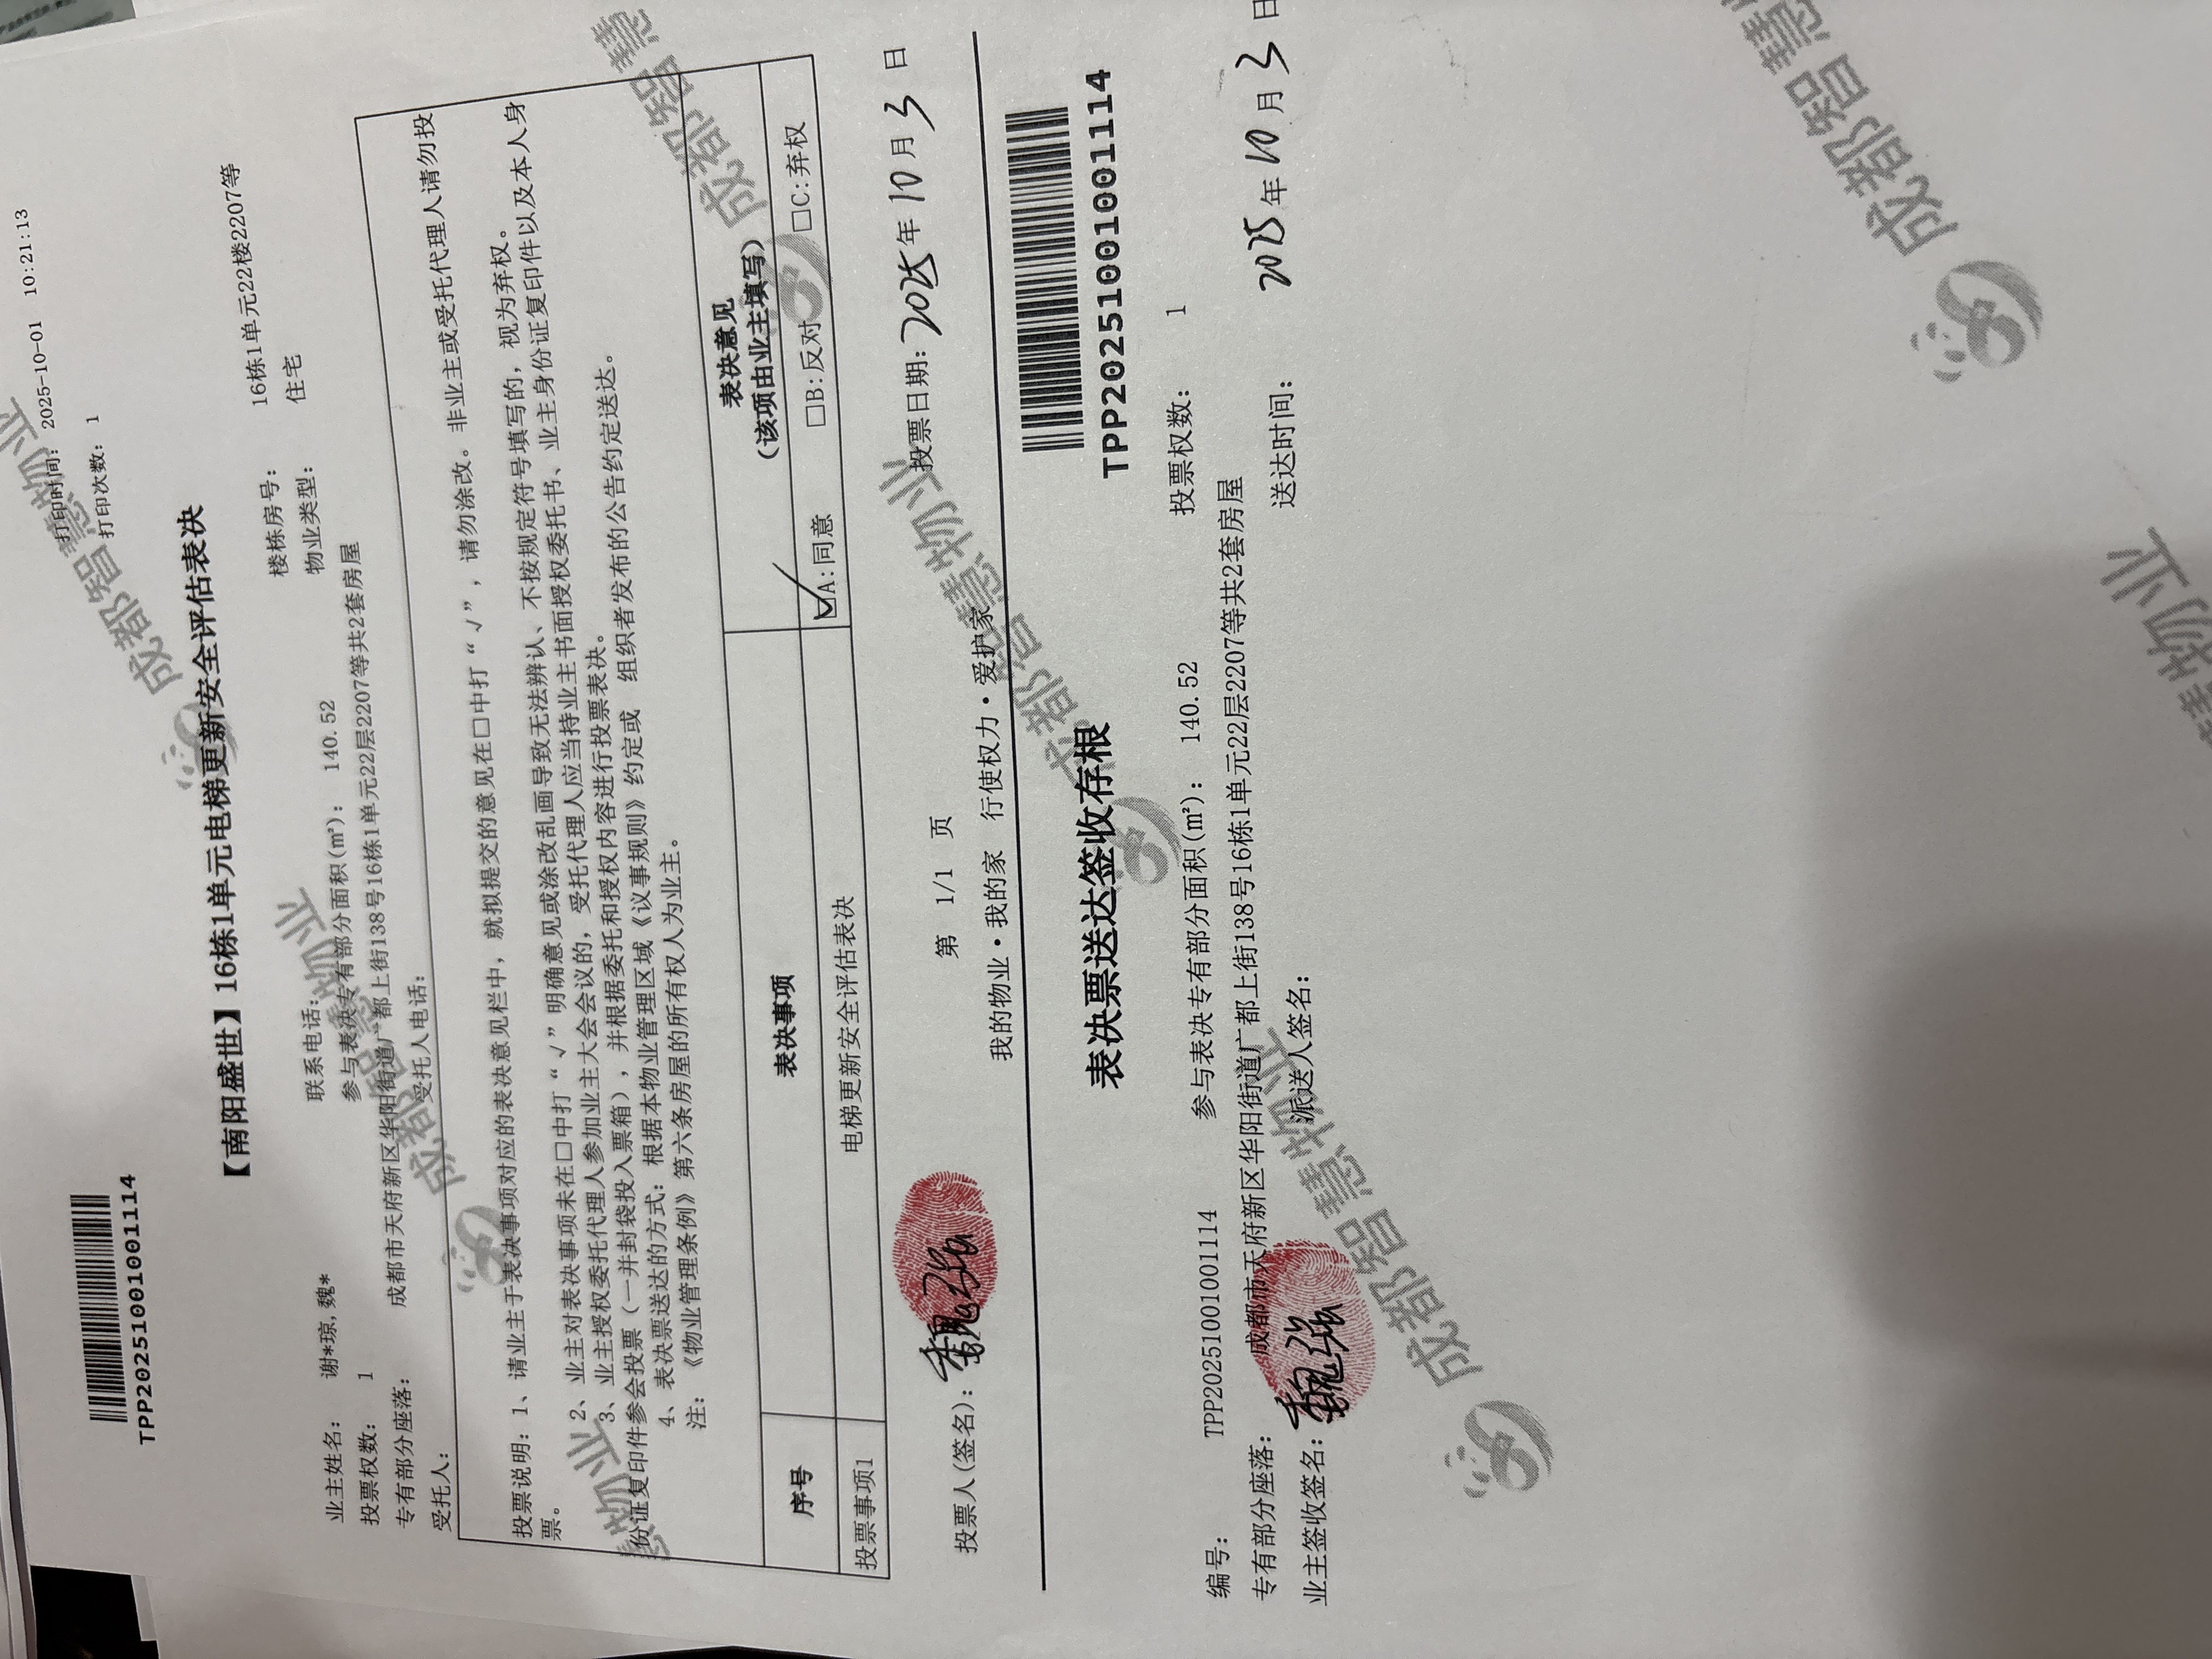 打印时间： 2025-10-01 10:21:13
打印次数： 1
TPP20251001001114
【南阳盛世】16栋1单元电梯更新安全评估表决
业主姓名： 谢*琼,魏* 联系电话： 楼栋房号： 16栋1单元22楼2207等
投票权数： 1 参与表决专有部分面积(㎡)： 140.52 物业类型： 住宅
专有部分座落： 成都市天府新区华阳街道广都上街138号16栋1单元22层2207等共2套房屋
受托人： 受托人电话：
投票说明：1、请业主于表决事项对应的表决意见栏中，就拟提交的意见在□中打“√”，请勿涂改。非业主或受托代理人请勿投
票。
2、业主对表决事项未在□中打“√”明确意见或涂改乱画导致无法辨认、不按规定符号填写的，视为弃权。
3、业主授权委托代理人参加业主大会会议的，受托代理人应当持业主书面授权委托书、业主身份证复印件以及本人身
份证复印件参会投票（一并封袋投入票箱），并根据委托和授权内容进行投票表决。
4、表决票送达的方式：根据本物业管理区域《议事规则》约定或 组织者发布的公告约定送达。
注：《物业管理条例》第六条房屋的所有权人为业主。
序号 表决事项 表决意见
（该项由业主填写）
投票事项1 电梯更新安全评估表决 ☑A:同意 □B:反对 □C:弃权
投票人(签名)：魏强 第 1/1 页 投票日期：2025年10月3日
我的物业·我的家 行使权力·爱护家
表决票送达签收存根
TPP20251001001114
编号： TPP20251001001114 参与表决专有部分面积(㎡)： 140.52 投票权数： 1
专有部分座落： 成都市天府新区华阳街道广都上街138号16栋1单元22层2207等共2套房屋
业主签收签名：魏强 派送人签名： 送达时间： 2025年10月3日
成都智慧物业
成都智慧物业
慧物业
成都智慧
成都智慧物业
成都智慧物业
成都智慧物
慧物业